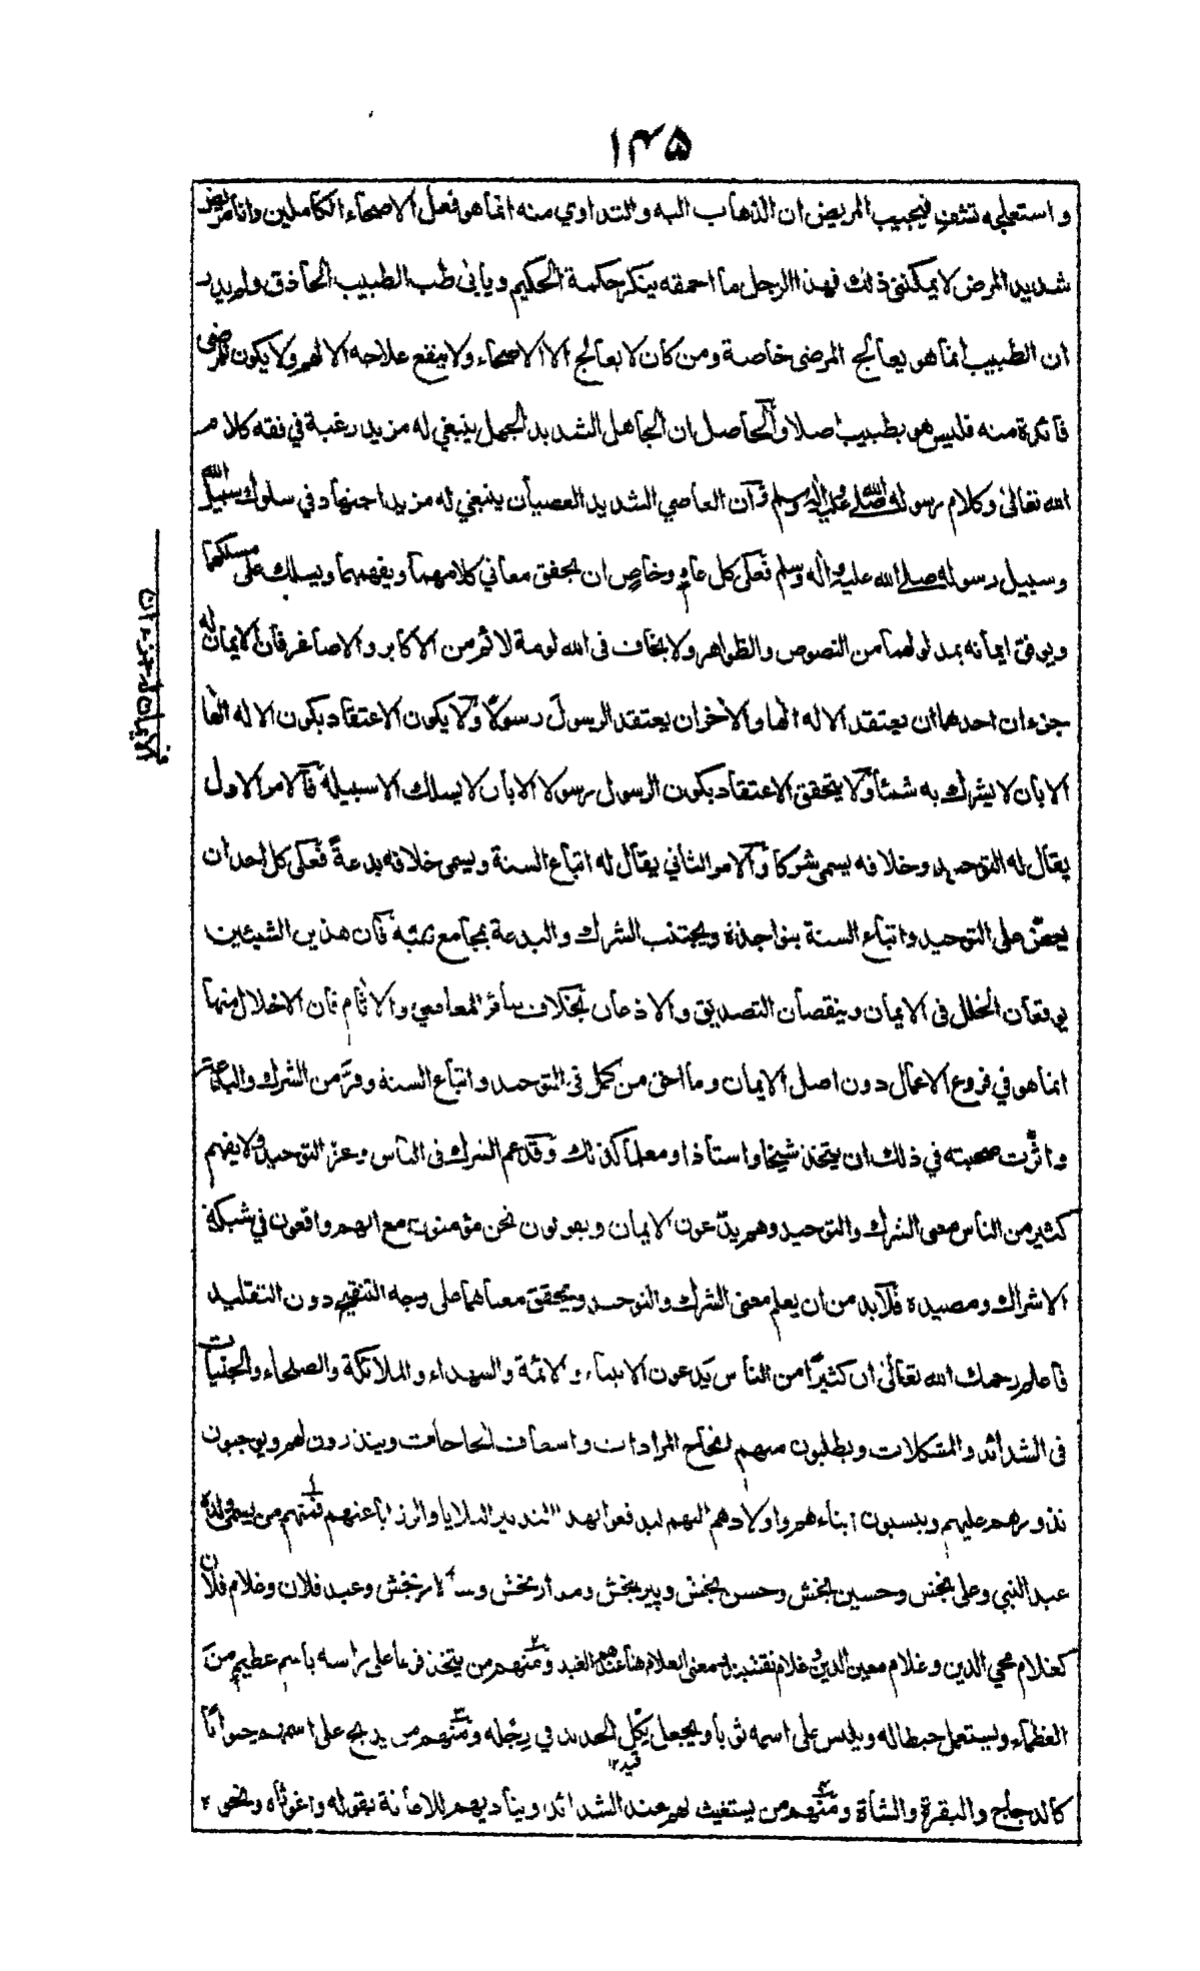 ١٤٥
واستعلجه تشف فيجيب المريض ان الذهاب اليه والتداوي منه انما هو فعل الاصحاء الكاملين وانا مريض
شديد المرض لا يمكنني ذلك فهذا الرجل ما احمقه ينكر حكمة الحكيم ويأبى طب الطبيب الحاذق ولم يدر
ان الطبيب انما هو يعالج المرضى خاصة ومن كان لا يعالج الا الاصحاء ولا ينفع علاجه الا لهم ولا يكون للمرضى
فائدة منه فليس هو بطبيب اصلا والحاصل ان الجاهل الشديد الجهل ينبغي له مزيد رغبة في فقه كلام
الله تعالى وكلام رسوله صلى الله عليه وآله وسلم وان العاصي الشديد العصيان ينبغي له مزيد اجتهاد في سلوك سبيل الله
وسبيل رسوله صلى الله عليه وآله وسلم فعلى كل عام وخاص ان يحقق معاني كلامهما ويفهمهما ويسلك على مسلكهما
ويوفق ايمانه بمدلولهما من النصوص والظواهر ولا يخاف في الله لومة لائم من الاكابر والاصاغر فان الايمان له
جزءان احدهما ان يعتقد الاله الها والاخر ان يعتقد الرسول رسولا ولا يكون الاعتقاد بكون الاله الها
الا بان لا يشرك به شيئا ولا يتحقق الاعتقاد بكون الرسول رسولا الا بان لا يسلك الا سبيله فالامر الاول
يقال له التوحيد وخلافه يسمى شركا والامر الثاني يقال له اتباع السنة ويسمى خلافه بدعة فعلى كل احد ان
يعض على التوحيد واتباع السنة بنواجذه ويجتنب الشرك والبدعة بمجامع همته فان هذين الشيئين
يوقعان الخلل في الايمان وينقصان التصديق والاذعان بخلاف سائر المعاصي والاثام فان الاخلال منها
انما هو في فروع الاعمال دون اصل الايمان وما احق من كمل في التوحيد واتباع السنة وفر من الشرك والبدعة
واثرت صحبته في ذلك ان يتخذ شيخا واستاذا ومعلما كذلك وقد عم الشرك في الناس وعز التوحيد ولا يفهم
كثير من الناس معنى الشرك والتوحيد وهم يدعون الايمان ويقولون نحن مؤمنون مع انهم واقعون في شبكة
الاشراك ومصيده فلابد من ان يعلم معنى الشرك والتوحيد ويتحقق معناهما على وجه التنقيح دون التقليد
فاعلم رحمك الله تعالى ان كثيرا من الناس يدعون الانبياء والائمة والشهداء والملائكة والصلحاء والجنيات
في الشدائد والمشكلات ويطلبون منهم انجاح المرادات واسعاف الحاجات وينذرون لهم ويوجبون
نذورهم عليهم وينسبون ابناءهم واولادهم اليهم ليدفعوا بهذا التدبير البلايا والرزايا عنهم فمنهم من يسمي ولده
عبد النبي وعلي بخش وحسين بخش وحسن بخش وپير بخش ومدار بخش وسالار بخش وعبد فلان وغلام فلان
كغلام محي الدين وغلام معين الدين وغلام نقشبند ومعنى الغلام هنا عندهم العبد ومنهم من يتخذ فرعا على راسه باسم عظيم من
العظماء ويستعمل خيطا له ويلبس على اسمه ثوبا ويجعل نكل الحديد في رجله ومنهم من يذبح على اسمه حيوانا
قيد ١٢
كالدجاج والبقرة والشاة ومنهم من يستغيث لهم عند الشدائد ويناديهم للاعانة بقوله واغوثاه ونحوه
الايمان له جزءان